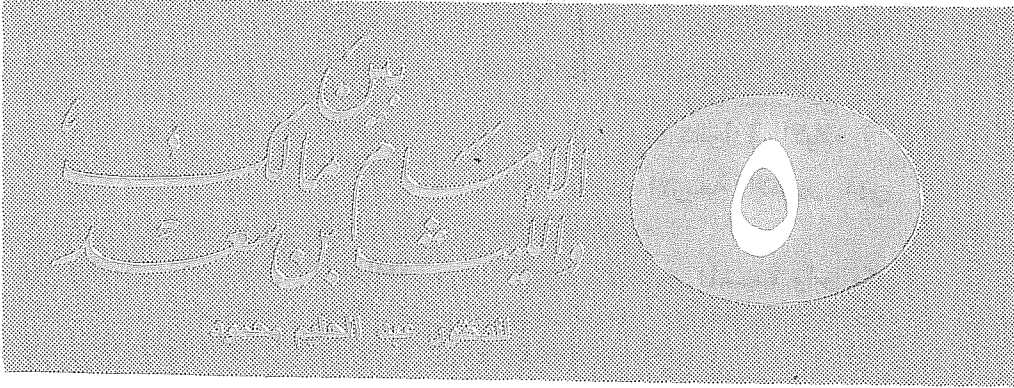 ٥
بين
الإمام مالك
والليث بن سعد
الدكتور عبد الحليم محمود